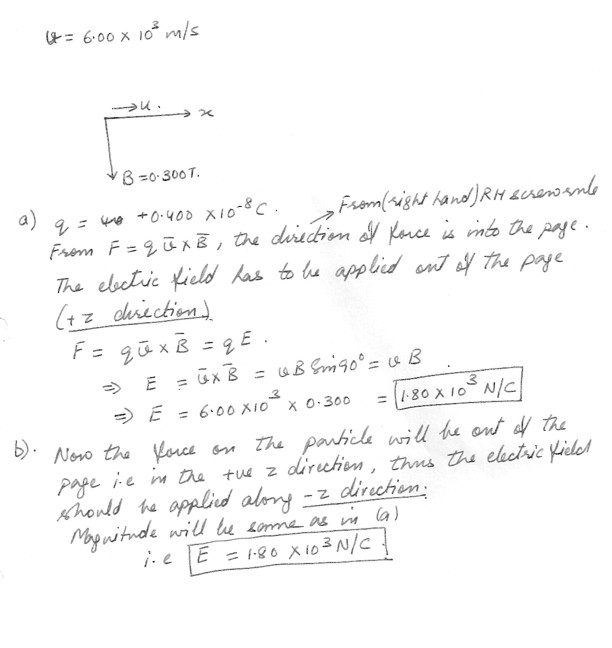 v = 6.00 x 10³ m/s
→ u .
→ x
B = 0.300 T.
a) q = +0.400 x 10⁻⁸ C .
From (right hand) RH screw rule
From F = q v̄ x B̄ , the direction of force is into the page .
The electric field has to be applied out of the page
(+z direction)
F = q v̄ x B̄ = q E .
⇒ E = v̄ x B̄ = v B Sin 90° = v B
⇒ E = 6.00 x 10³ x 0.300 = 1.80 x 10³ N/C
b). Now the force on the particle will be out of the
page i.e in the +ve z direction , thus the electric field
should be applied along -z direction .
Magnitude will be same as in (a)
i.e E = 1.80 x 10³ N/C